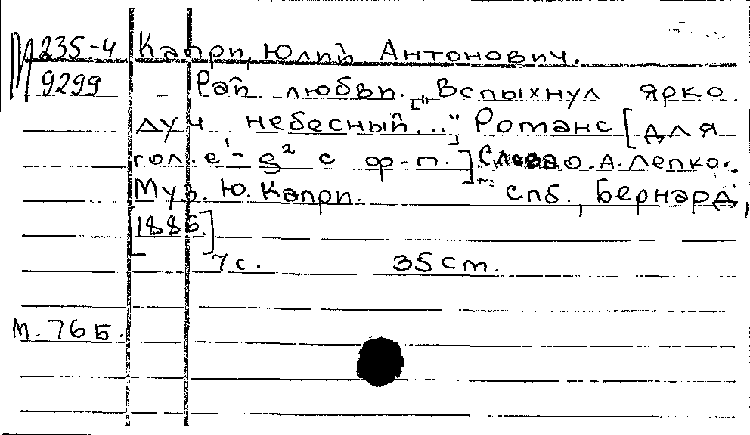 М 235-4 Капри, Юлий Антонович.
9299 Рай любви. ["Вспыхнул ярко
луч небесный..."] Романс [для
гол. e¹-g² с ф-п.] Слова О.А. Лепко.
Муз. Ю. Капри. Спб., Бернард,
[1886]
7 с. 35 см.
М-76 Б.